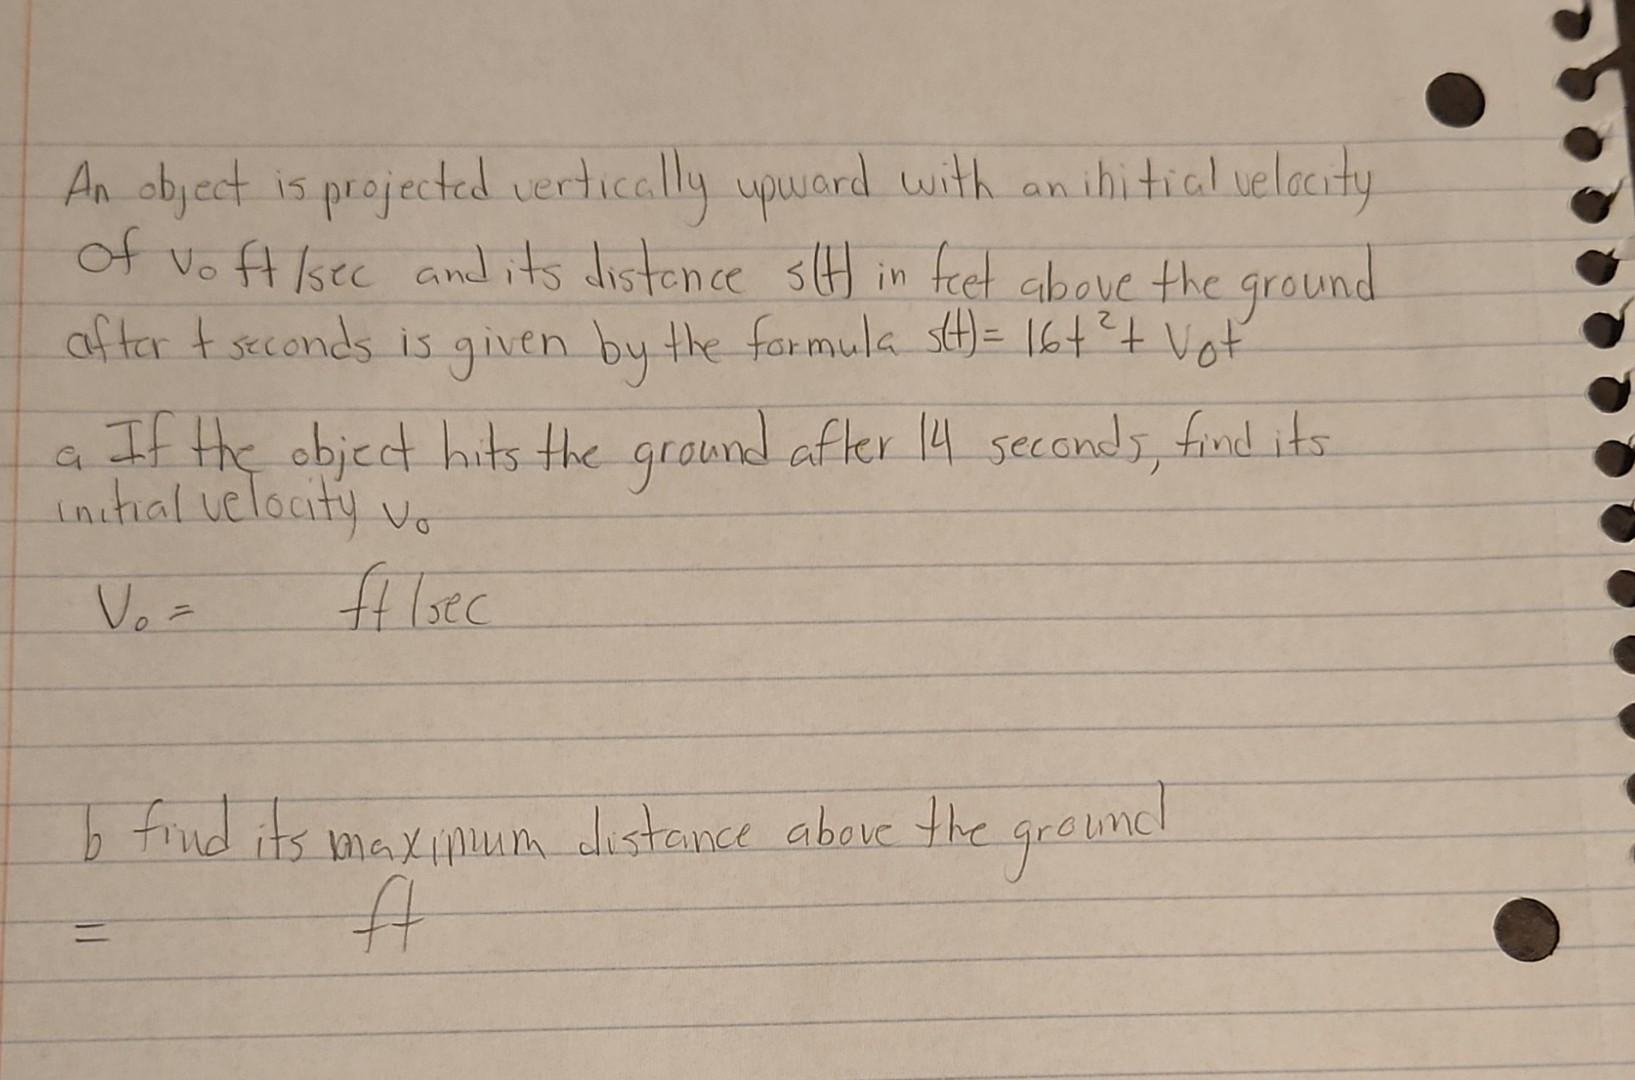 An object is projected vertically upward with an initial velocity
of v₀ ft/sec and its distance s(t) in feet above the ground
after t seconds is given by the formula s(t)= 16t² + V₀t
a If the object hits the ground after 14 seconds, find its
initial velocity v₀
V₀ = ft/sec
b find its maximum distance above the ground
= ft